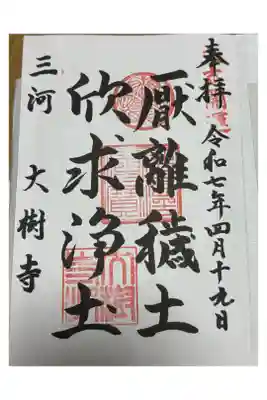 奉拝 令和七年四月十九日
厭離穢土
欣求浄土
三河 大樹寺